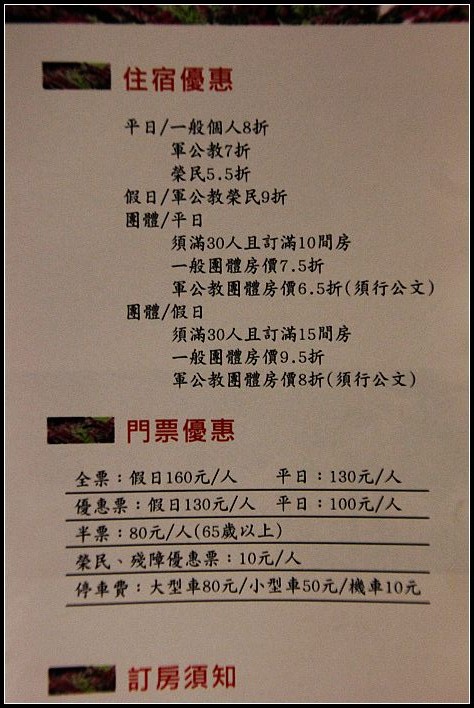 住宿優惠
平日/一般個人8折
軍公教7折
榮民5.5折
假日/軍公教榮民9折
團體/平日
須滿30人且訂滿10間房
一般團體房價7.5折
軍公教團體房價6.5折(須行公文)
團體/假日
須滿30人且訂滿15間房
一般團體房價9.5折
軍公教團體房價8折(須行公文)
門票優惠
全票：假日160元/人 平日：130元/人
優惠票：假日130元/人 平日：100元/人
半票：80元/人(65歲以上)
榮民、殘障優惠票：10元/人
停車費：大型車80元/小型車50元/機車10元
訂房須知